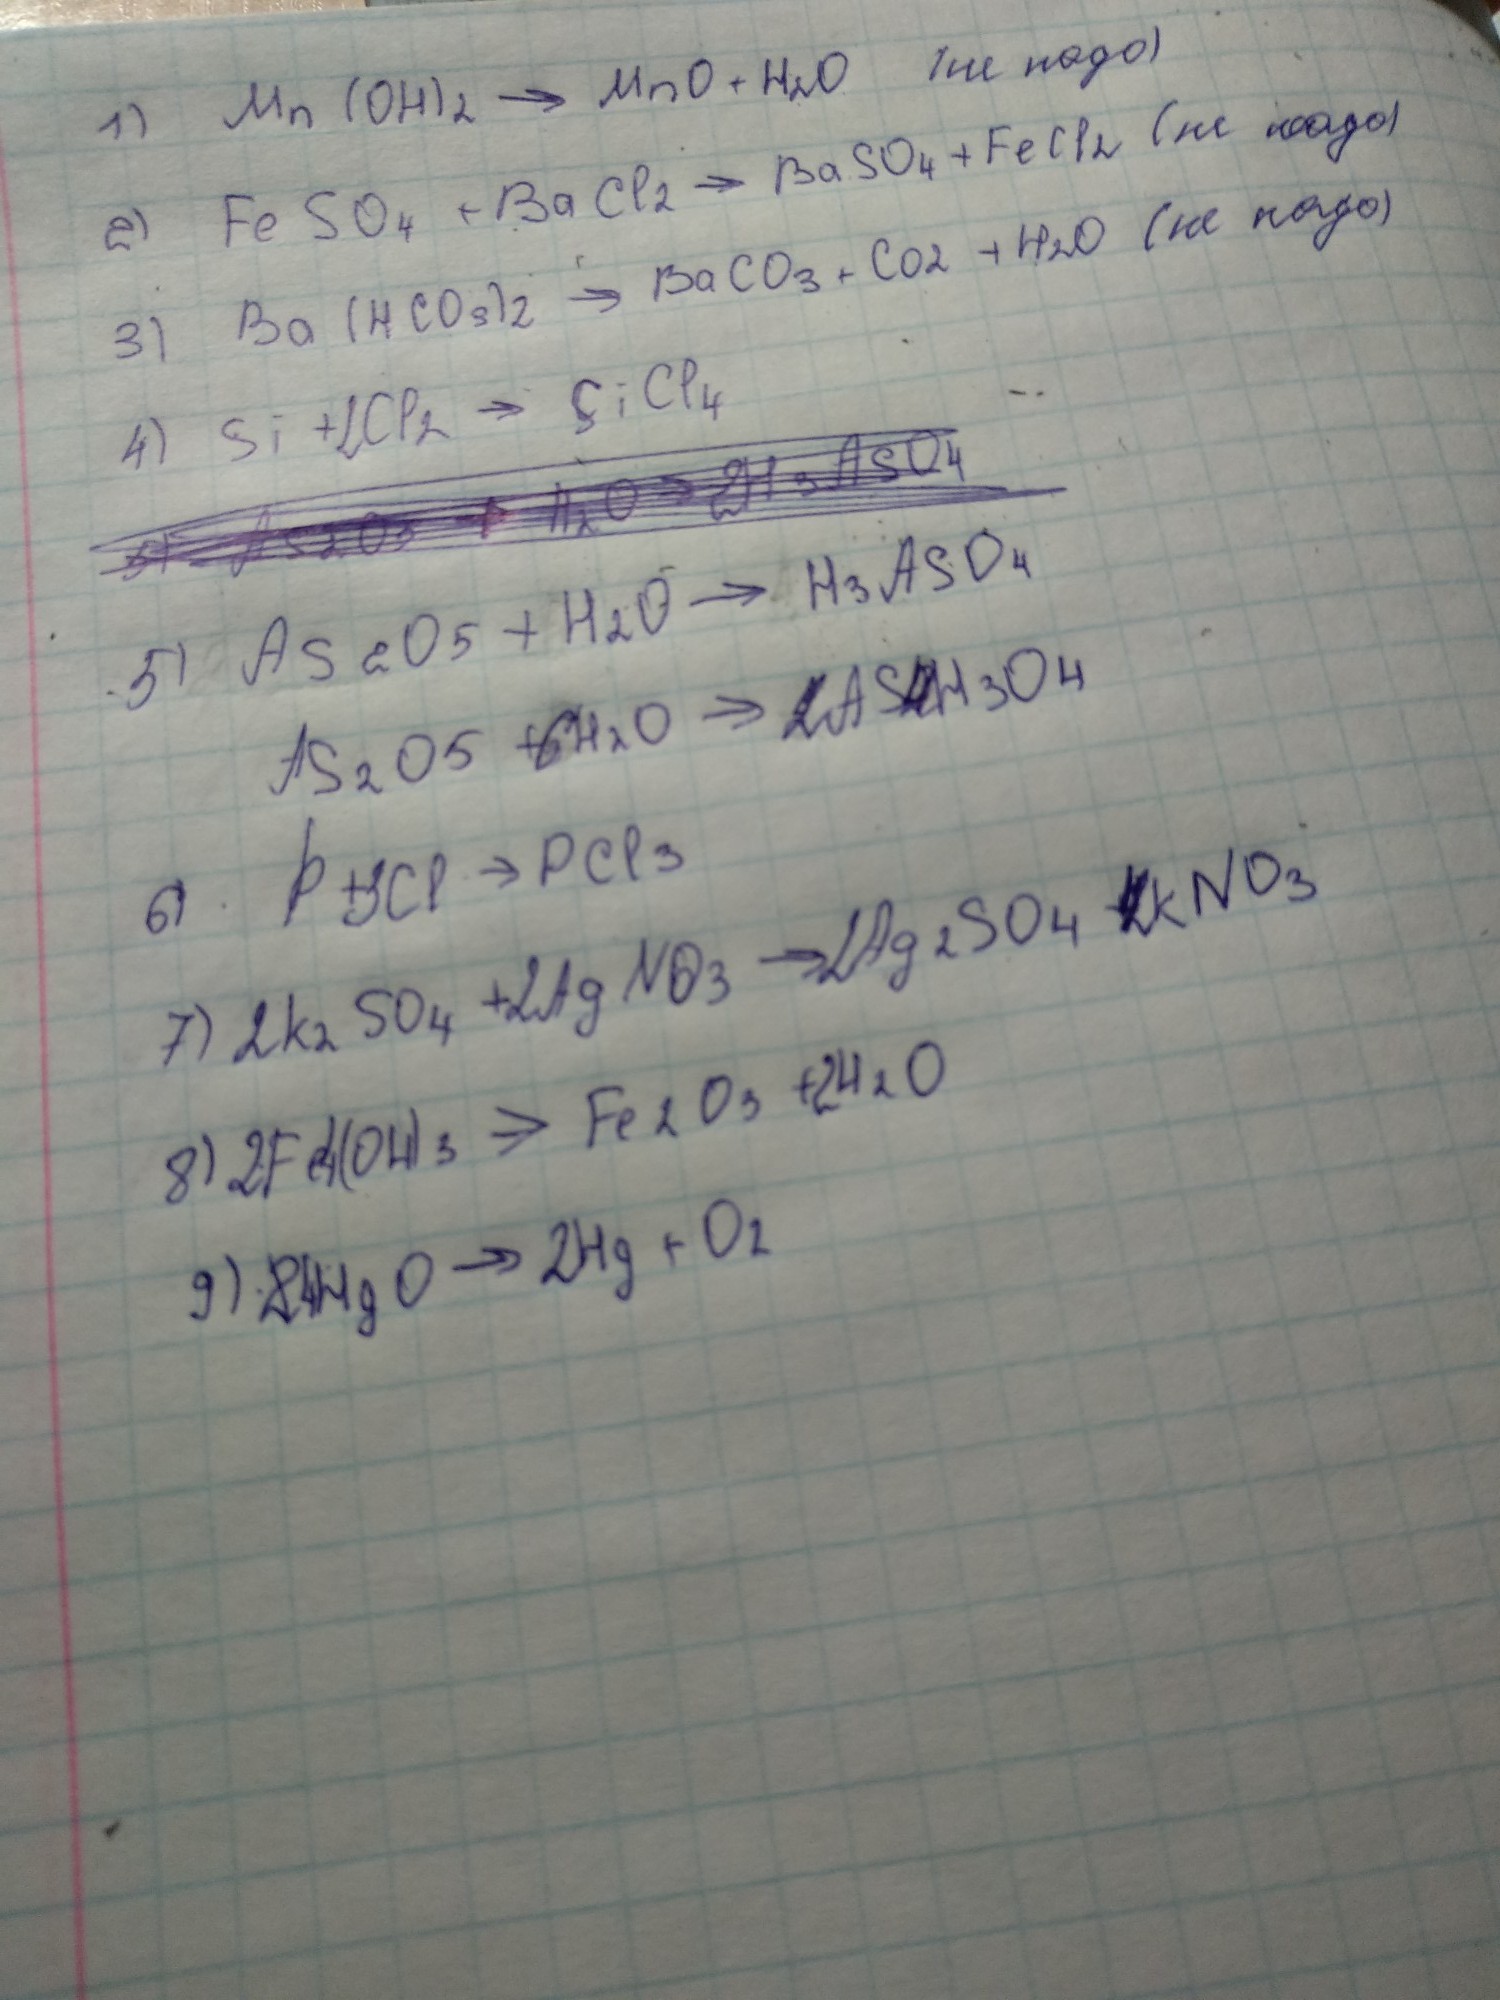 1) Mn(OH)2 → MnO + H2O (не надо)
2) FeSO4 + BaCl2 → BaSO4 + FeCl2 (не надо)
3) Ba(HCO3)2 → BaCO3 + CO2 + H2O (не надо)
4) Si + 2Cl2 → SiCl4
5) As2O3 + H2O → 2H3AsO4
5) As2O5 + H2O → H3AsO4
As2O5 + 6H2O → 2AsH3O4
6) P + 3Cl → PCl3
7) 2K2SO4 + 2AgNO3 → 2Ag2SO4 + 2KNO3
8) 2Fe(OH)3 → Fe2O3 + 2H2O
9) HgO → 2Hg + O2